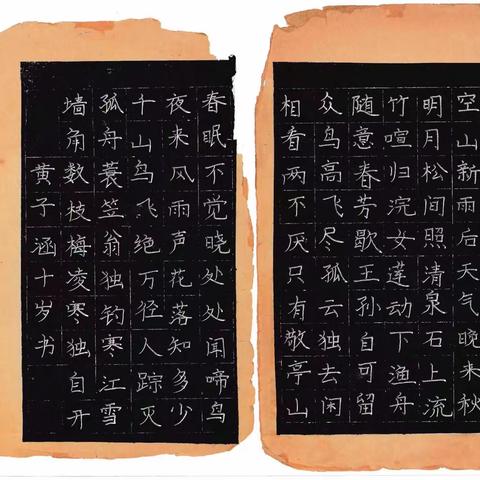 空山新雨后天气晚来秋
明月松间照清泉石上流
竹喧归浣女莲动下渔舟
随意春芳歇王孙自可留
众鸟高飞尽孤云独去闲
相看两不厌只有敬亭山
春眠不觉晓处处闻啼鸟
夜来风雨声花落知多少
千山鸟飞绝万径人踪灭
孤舟蓑笠翁独钓寒江雪
墙角数枝梅凌寒独自开
黄子涵十岁书